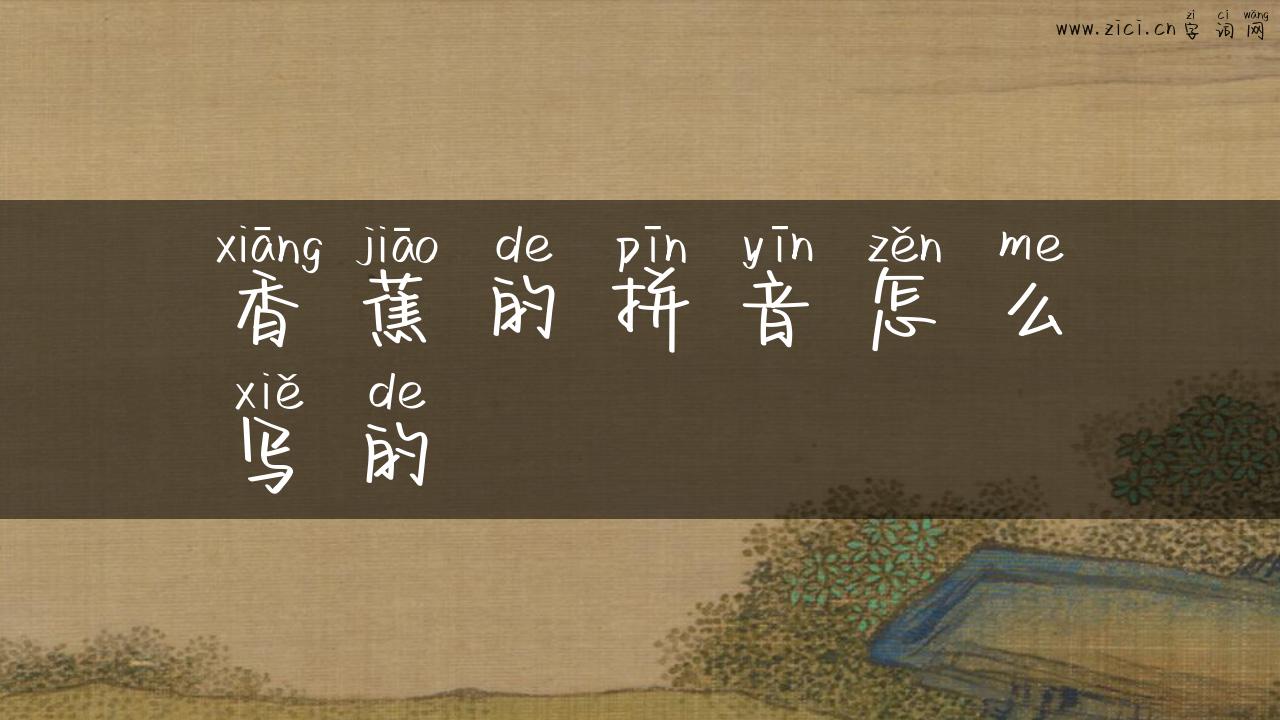 zì cí wǎng
www.zici.cn 字词网
xiāng jiāo de pīn yīn zěn me
香蕉的拼音怎么
xiě de
写的